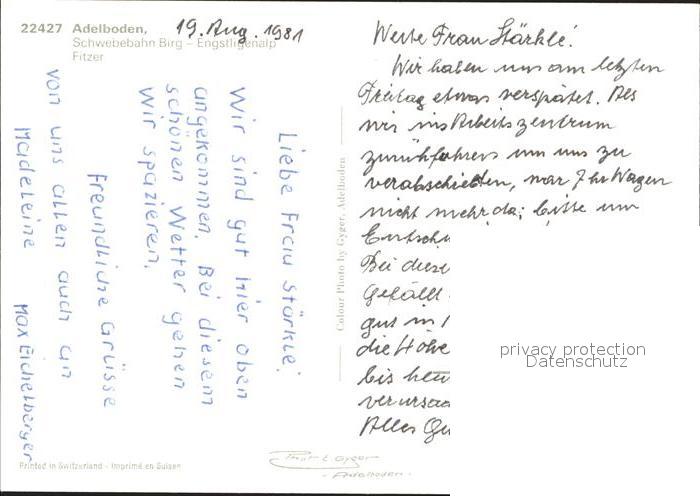 22427 Adelboden, 19. Aug. 1981
Schwebebahn Birg – Engstligenalp
Fitzer
Liebe Frau Stärkle!
Wir sind gut hier oben
angekommen. Bei diesem
schönen Wetter gehen
wir spazieren.
Freundliche Grüsse
von uns allen auch an
Madeleine Max Eichelberger
Werte Frau Stärkle!
Wir haben uns am letzten
Freitag etwas verspätet. Als
wir ins Arbeitszentrum
zurückfahren um uns zu
verabschieden, war Ihr Wagen
nicht mehr da; bitte um
Entschu
Bei diese
Gefällt
gut in
die Höhe
bis heu
verursac
Alles Gu
Colour Photo by Gyger, Adelboden
privacy protection
Datenschutz
Printed in Switzerland - Imprimé en Suisse
Gyger
- Adelboden -